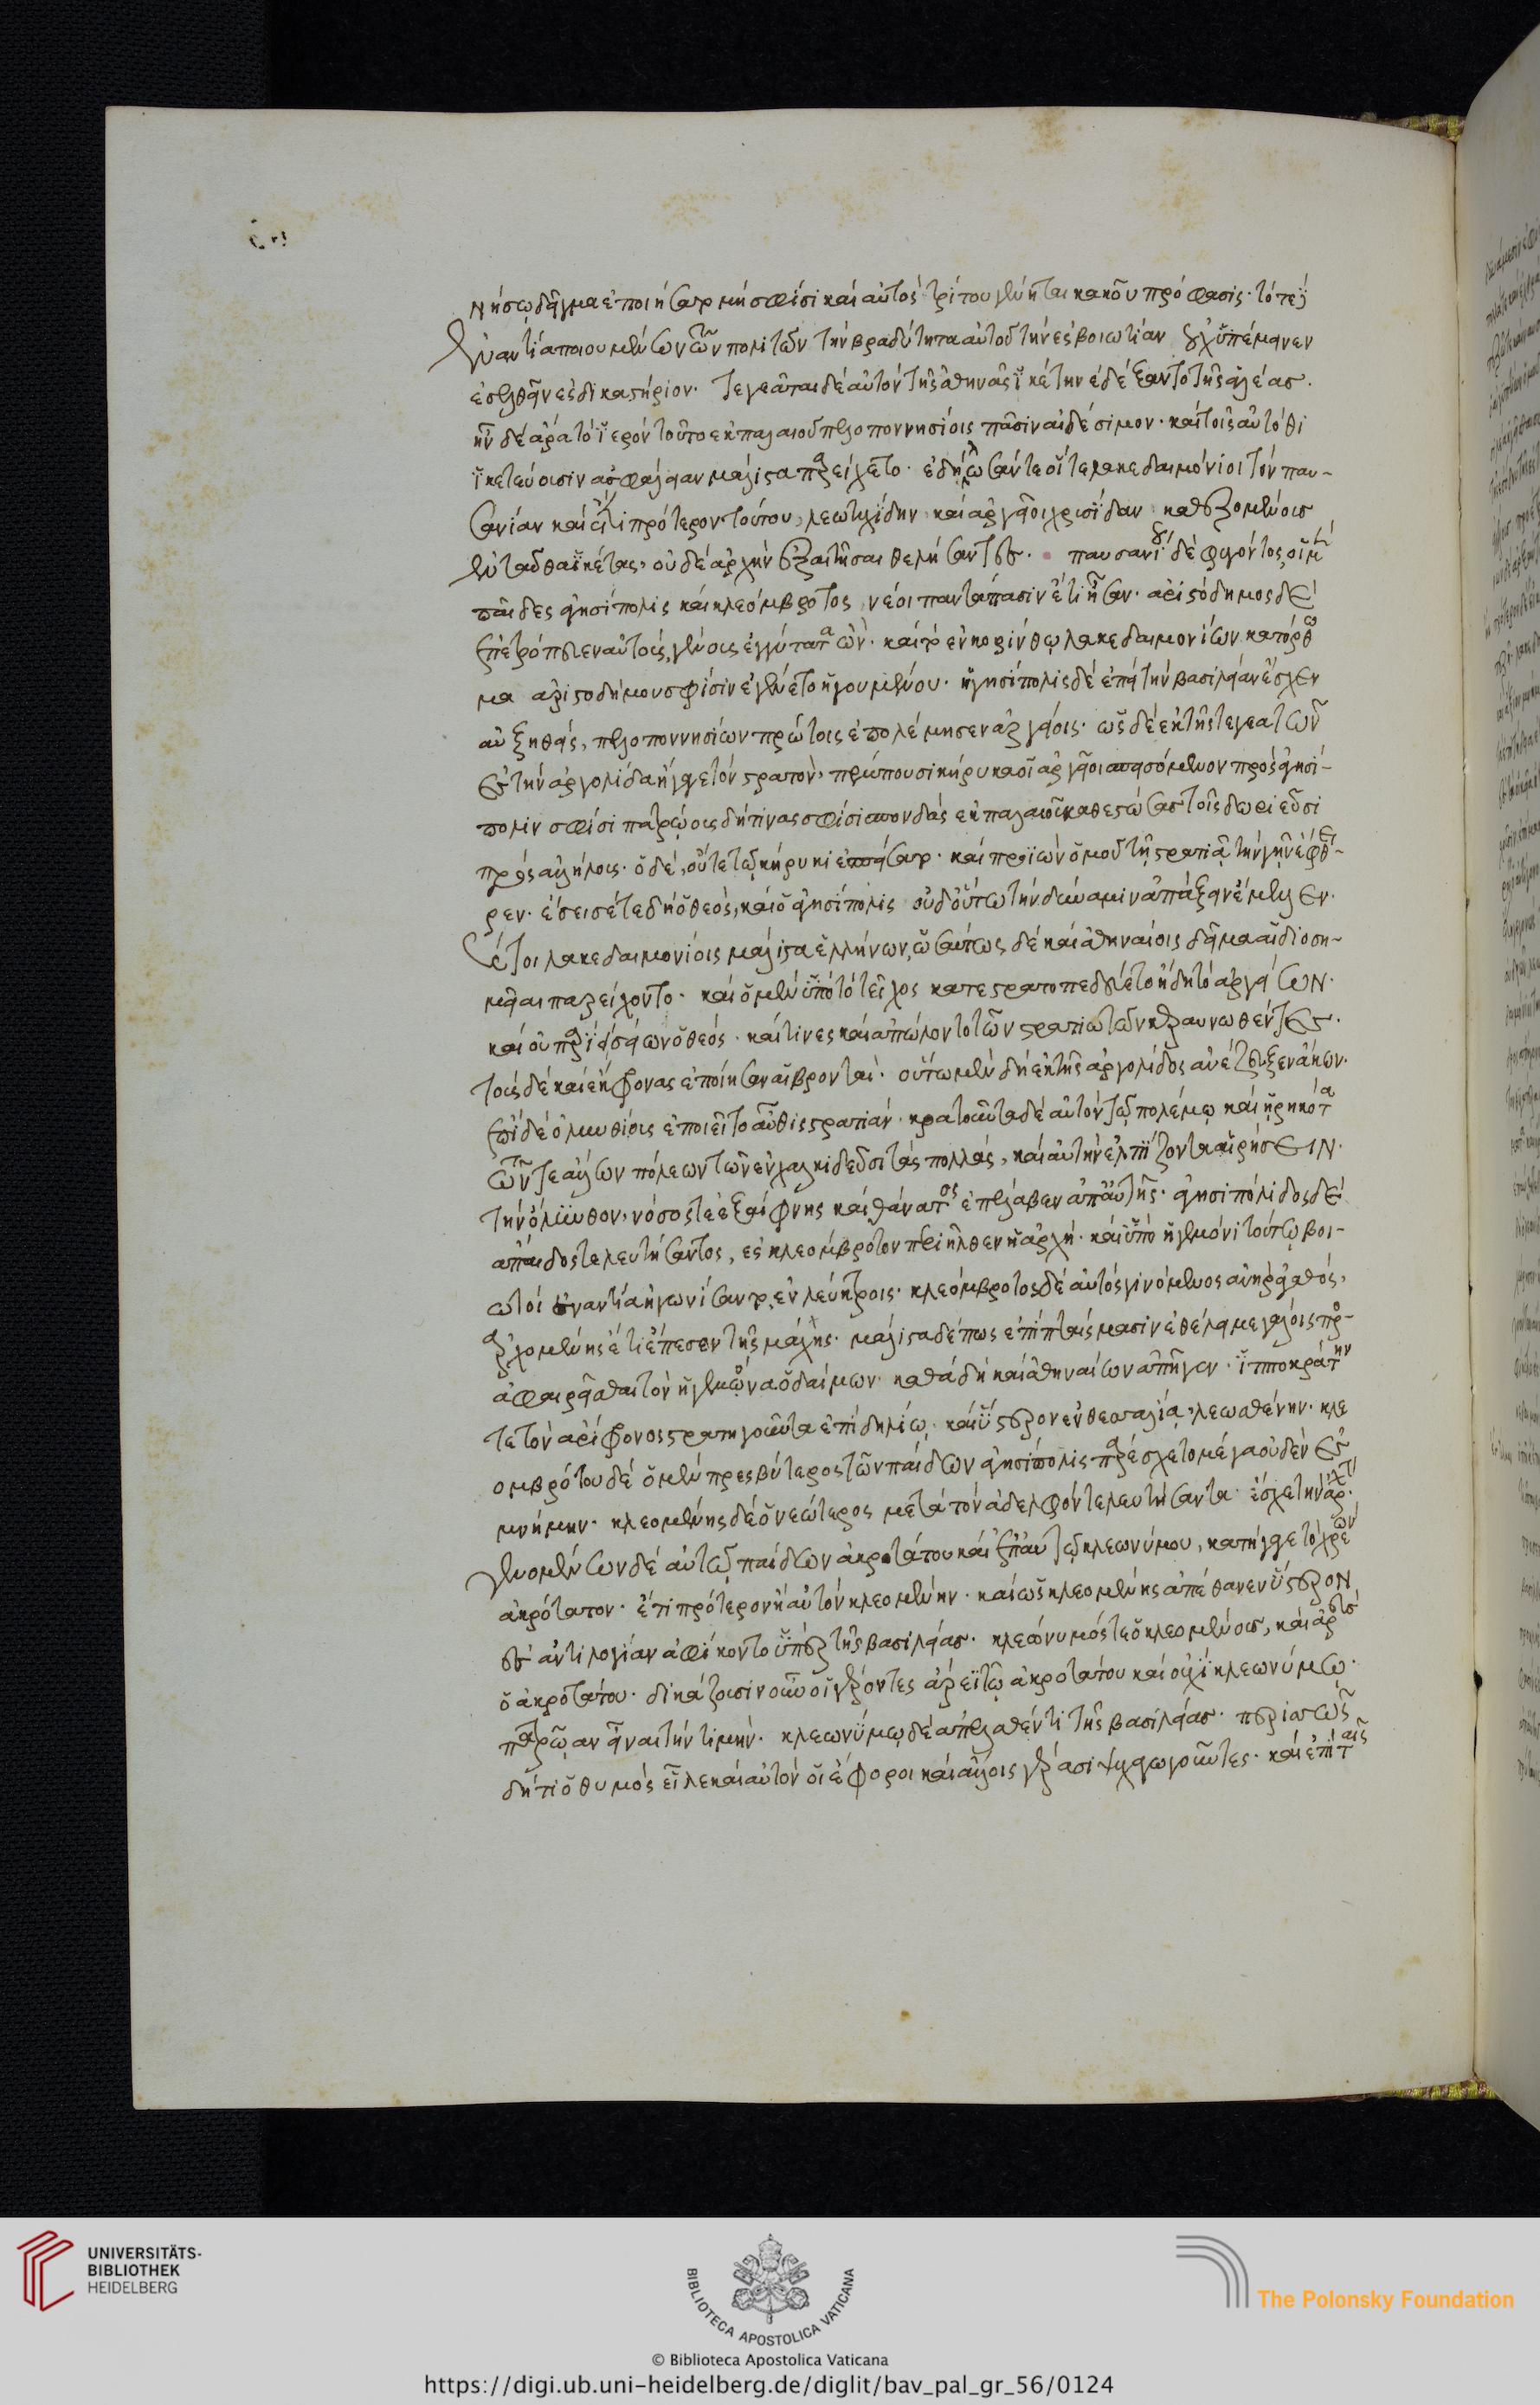 νήσῳ δεῖγμα ἐποιήσαν μὴ σφίσι καὶ αὐτὸς τρίτου γένηται κακοῦ πρόφασις· τότε δὲ
ἐναντία ποιουμένων τῶν πολιτῶν τὴν βραδύτητα αὐτοῦ τὴν ἐς βοιωτίαν οὐχ ὑπέμεινεν
ἐσελθεῖν ἐς δικαστήριον· τεγεᾶται δὲ αὐτὸν τῆς ἀθηνᾶς ἱκέτην ἐδέξαντο τῆς ἀλέας.
ἦν δὲ ἄρα τὸ ἱερὸν τοῦτο ἐκ παλαιοῦ πελοποννησίοις πᾶσιν αἰδέσιμον· καὶ τοῖς αὐτόθι
ἱκετεύουσιν ἀσφάλειαν μάλιστα παρείχετο· ἐδήλωσάν τε οἵ τε λακεδαιμόνιοι τὸν παυ-
σανίαν καὶ ἔτι πρότερον τούτου, λεωτυχίδην καὶ ἀργεῖοι χρισίδαν καθεζομένους
ἐνταῦθα ἱκέτας, οὐδὲ ἀρχὴν ἐξαιτῆσαι θελήσαντες. παυσανίου δὲ φυγόντος, οἱ μὲν
παῖδες ἀγησίπολις καὶ κλεόμβροτος, νέοι παντάπασιν ἔτι ἦσαν· ἀριστόδημος δὲ
ἐπετρόπευεν αὐτοὺς, γένους ἐγγύτατα ὢν· καὶ τὸ ἐν κορίνθῳ λακεδαιμονίων κατόρθω
μα ἀριστοδήμου σφίσιν ἐγένετο ἡγουμένου· ἡγησίπολις δὲ ἐπεὶ τὴν βασιλείαν ἔσχεν
αὐξηθεὶς, πελοποννησίων πρώτοις ἐπολέμησεν ἀργείοις· ὡς δὲ ἐκ τῆς τεγεατῶν
ἐς τὴν ἀργολίδα ἤγαγε τὸν στρατὸν, πέμπουσι κήρυκα οἱ ἀργεῖοι σπεισόμενον πρὸς ἀγησί-
πολιν σφίσι πατρῴους δή τινας σφίσι σπονδὰς ἐκ παλαιοῦ καθεστώσας τοῖς δωριεῦσι
πρὸς ἀλλήλους· ὁ δὲ, οὔτε τῷ κήρυκι ἐσπείσατο· καὶ προϊὼν ὁμοῦ τῇ στρατιᾷ τὴν γῆν ἔφθει-
ρεν· ἔσεισέ τε δὴ ὁ θεὸς, καὶ ὁ ἀγησίπολις οὐδ' οὕτω τὴν δύναμιν ἀπάξειν ἔμελλεν.
καί τοι λακεδαιμονίοις μάλιστα ἑλλήνων, ὡσαύτως δὲ καὶ ἀθηναίοις δεῖμα αἱ διοση-
μεῖαι παρείχοντο· καὶ ὁ μὲν ὑπὸ τὸ τεῖχος κατεστρατοπεδεύετο ἤδη τὸ ἀργείων·
καὶ οὐ παρίει σείων ὁ θεός· καί τινες καὶ ἀπώλοντο τῶν στρατιωτῶν κεραυνωθέντες.
τοὺς δὲ καὶ ἔκφρονας ἐποίησαν αἱ βρονταί· οὕτω μὲν δὴ ἐκ τῆς ἀργολίδος ἀνέζευξεν ἄκων.
ἐπὶ δὲ ὀλυνθίους ἐποιεῖτο αὖθις στρατιάν· κρατοῦντα δὲ αὐτὸν τῷ πολέμῳ καὶ ᾑρηκότα
τῶν τε ἄλλων πόλεων τῶν ἐν χαλκιδεῦσι τὰς πολλὰς, καὶ αὐτὴν ἐλπίζοντα αἱρήσειν
τὴν ὄλυνθον, νόσος τε ἐξαίφνης καὶ θάνατος ἐπέλαβεν ἀπ' αὐτῆς· ἀγησιπόλιδος δὲ
ἄπαιδος τελευτήσαντος, ἐς κλεόμβροτον περιῆλθεν ἡ ἀρχή· καὶ ὑπὸ ἡγεμόνι τούτῳ βοι-
ωτοὶ ἐναντία ἠγωνίσαντο ἐν λεύκτροις· κλεόμβροτος δὲ αὐτὸς γινόμενος ἀνὴρ ἀγαθὸς,
ἀρχομένης ἔτι ἔπεσεν τῆς μάχης· μάλιστα δέ πως ἐπὶ πταίσμασιν ἐθέλει μεγάλοις προ-
αφαιρεῖσθαι τὸν ἡγεμόνα ὁ δαίμων· καθὰ δὴ καὶ ἀθηναίων ἀπῆγεν· ἱπποκράτην
τε τὸν ἀρίφρονος στρατηγοῦντα ἐπὶ δηλίῳ, καὶ ὕστερον ἐν θεσσαλίᾳ, λεωσθένην· κλε
ομβρότου δὲ ὁ μὲν πρεσβύτερος τῶν παίδων ἀγησίπολις παρέσχετο μέγα οὐδὲν ἐς
μνήμην· κλεομένης δὲ ὁ νεώτερος μετὰ τὸν ἀδελφὸν τελευτήσαντα ἔσχε τὴν ἀρχήν.
γενομένων δὲ αὐτῷ παίδων ἀκροτάτου καὶ ἐπ' αὐτῷ κλεωνύμου, κατήγγε τὸ χρεὼν
ἀκρότατον· ἔτι πρότερον ἢ αὐτὸν κλεομένην· καὶ ὡς κλεομένης ἀπέθανεν ὕστερον
ἐς ἀντιλογίαν ἀφίκοντο ὑπὲρ τῆς βασιλείας· κλεώνυμός τε ὁ κλεομένους, καὶ ἀρεὺς
ὁ ἀκροτάτου· δικάζουσιν οὖν οἱ γέροντες ἀρεῒ τῷ ἀκροτάτου καὶ οὐχὶ κλεωνύμῳ
πατρῷαν εἶναι τὴν τιμήν· κλεωνύμῳ δὲ ἀπελαθέντι τῆς βασιλείας· περισσῶς
δή τι ὁ θυμὸς εἷλε καὶ αὐτὸν οἱ ἔφοροι καὶ ἄλλοις γέρασι ψυχαγωγοῦντες· καὶ ἐπὶ ταῖς
UNIVERSITÄTS-
BIBLIOTHEK
HEIDELBERG
BIBLIOTECA APOSTOLICA VATICANA
The Polonsky Foundation
© Biblioteca Apostolica Vaticana
https://digi.ub.uni-heidelberg.de/diglit/bav_pal_gr_56/0124